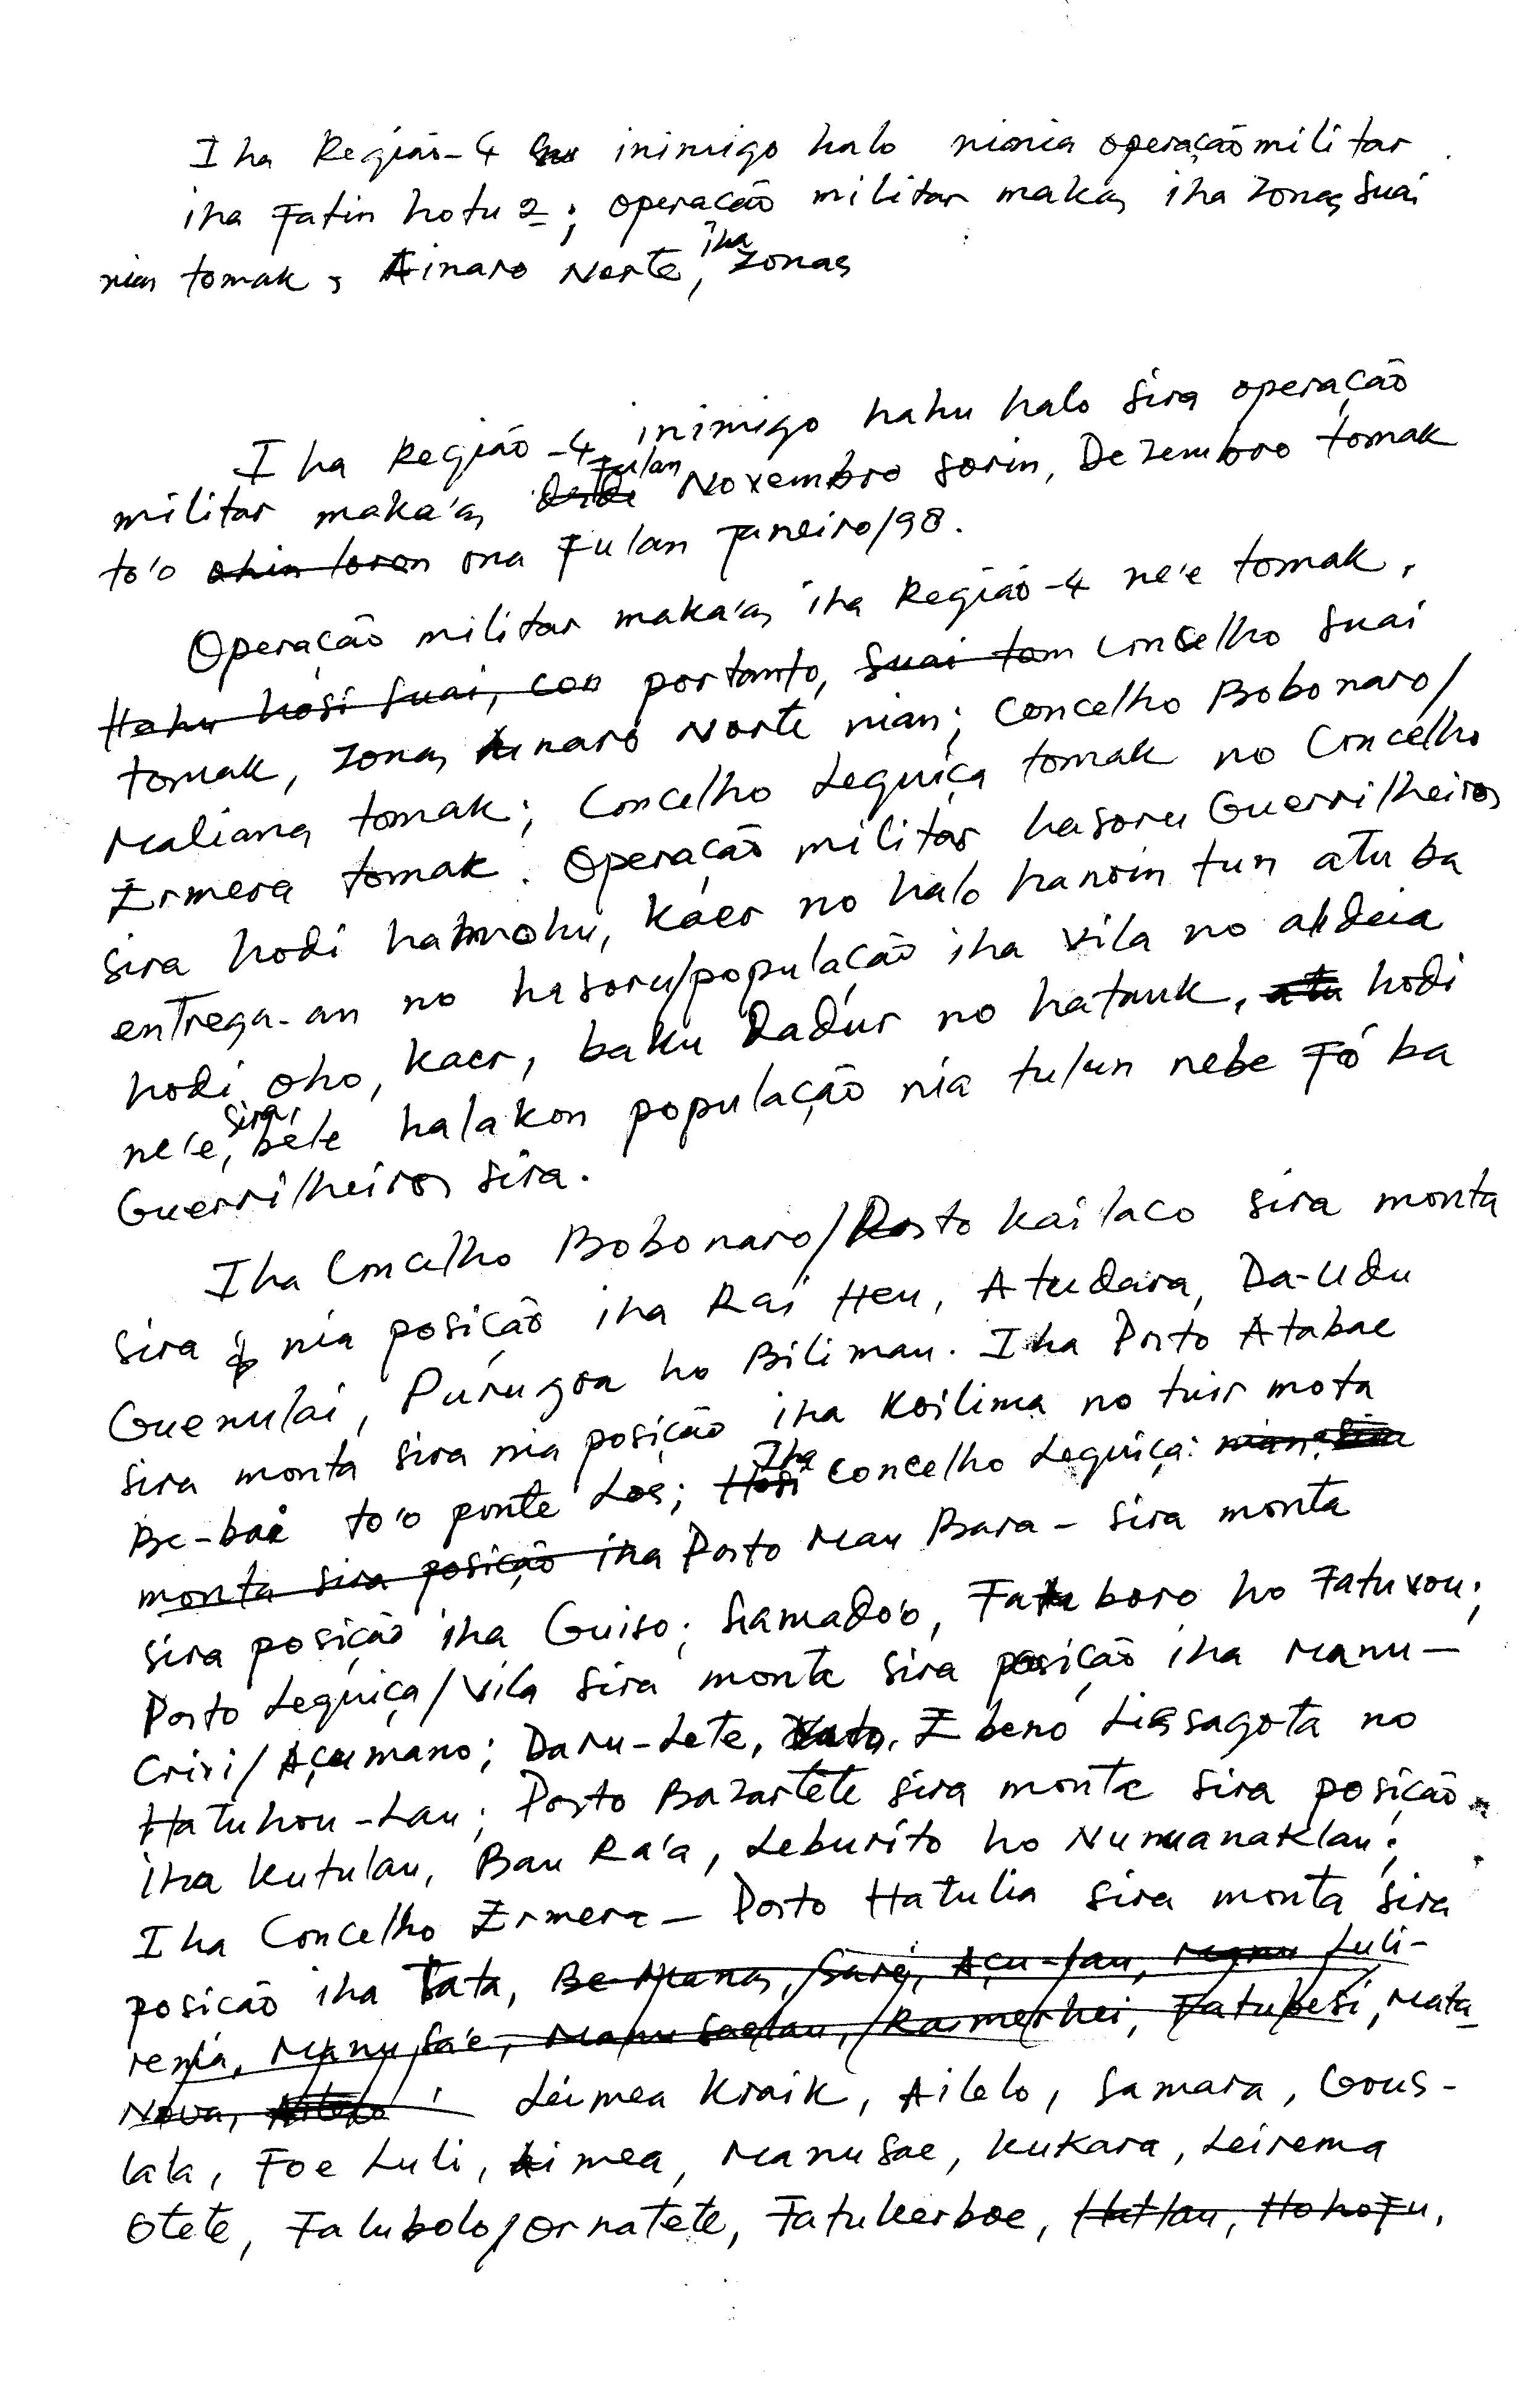 Iha Região-4 inimigo halo nia operação militar
iha Fatin hotu 2; operacão militar makas iha zonas Suai
nian tomak, Ainaro Norte, iha zonas
Iha Região-4 inimigo hahu halo sira operação
militar maka'as desde Fulan Novembro sorin, Dezembro tomak
to'o ohin loron ona Fulan Janeiro/98.
Operação militar maka'as iha Região-4 ne'e tomak,
Hahu hosi Suai, con portanto, Suai tom Concelho Suai
tomak, zonas Ainaro Norte nian; Concelho Bobonaro/
Maliana tomak; Concelho Lequiça tomak no Concelho
Ermera tomak. Operação militar hasoru Guerrilheiros
sira hodi hamohu, kaer no halo hanoin tun atu ba
entrega-an no hasoru/população iha vila no aldeia
hodi oho, kaer, baku Dadur no hatauk, atu hodi
ne'e, sira, bele halakon população nia tulun nebe Fó ba
Guerrilheiros sira.
Iha Concelho Bobonaro/Posto Kailaco sira monta
sira nia posição iha Rai Heu, Atudara, Da-Udu
Guenulai, Purugoa ho Biliman. Iha Posto Atabae
sira monta sira nia posição iha Koilima no tuir mota
Be-bai to'o ponte Loes; Hosi Iha Concelho Lequiça: nian sira
monta sira posição iha Posto Mau Bara - sira monta
sira posição iha Guiso; Samado'o, Fatuboro ho Fatuvou;
Posto Lequiça/Vila sira monta sira posição iha Manu-
Crixi/Açumano; Daru-Lete, Ebeno Lissagota no
Hatuhou-Lau; Posto Bazartete sira monta sira posição
iha Kutulau, Bau Ra'a, Leburito ho Numanaklau;
Iha Concelho Ermera - Posto Hatulia sira monta sira
posição iha Tata, Be Manas, Sare, Açu-lau, Manu Luli-
rema, Manusa'e, Manu Saelau, /Raimerhei, Fatubesi, Mata
Nova, Ailelo Leimea Kraik, Ailelo, Samara, Gous-
lala, Foe Luli, Limea, Manusae, Kukara, Leirema
Otete, Falubolo/Ornatete, Fatukerboe, Hatlau, Hohofu,